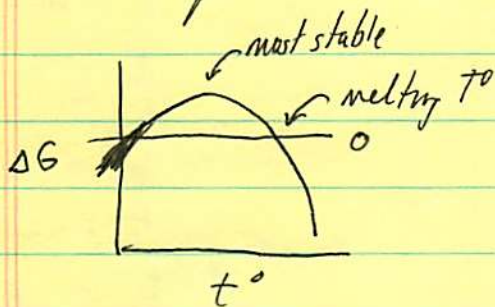 most stable
melting T°
ΔG
0
t°